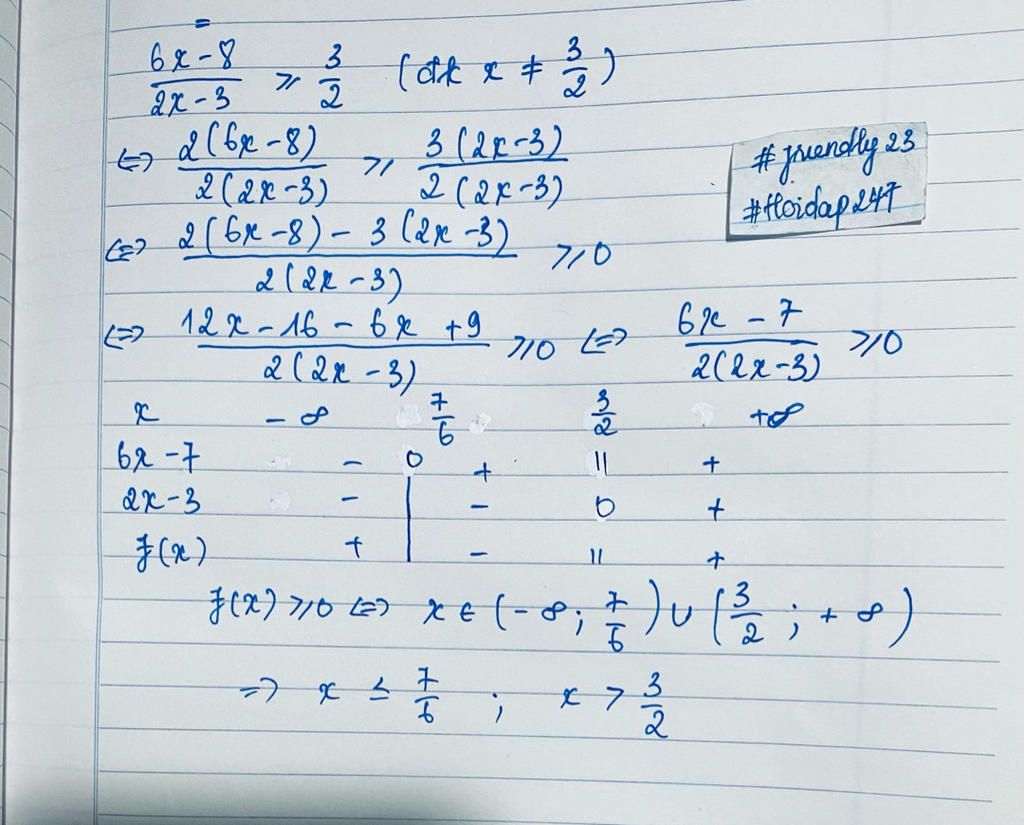 =
6x - 8 / 2x - 3 ⩾ 3/2 (đk x ≠ 3/2)
⇔ 2(6x - 8) / 2(2x - 3) ⩾ 3(2x - 3) / 2(2x - 3)
# friendly 23
#Hoidap247
⇔ 2(6x - 8) - 3(2x - 3) / 2(2x - 3) ⩾ 0
⇔ 12x - 16 - 6x + 9 / 2(2x - 3) ⩾ 0 ⇔ 6x - 7 / 2(2x - 3) ⩾ 0
x - ∞ 7/6 3/2 +∞
6x - 7 - 0 + || +
2x - 3 - | - 0 +
f(x) + | - || +
f(x) ⩾ 0 ⇔ x ∈ (- ∞; 7/6) ∪ (3/2; + ∞)
=> x ≤ 7/6 ; x > 3/2